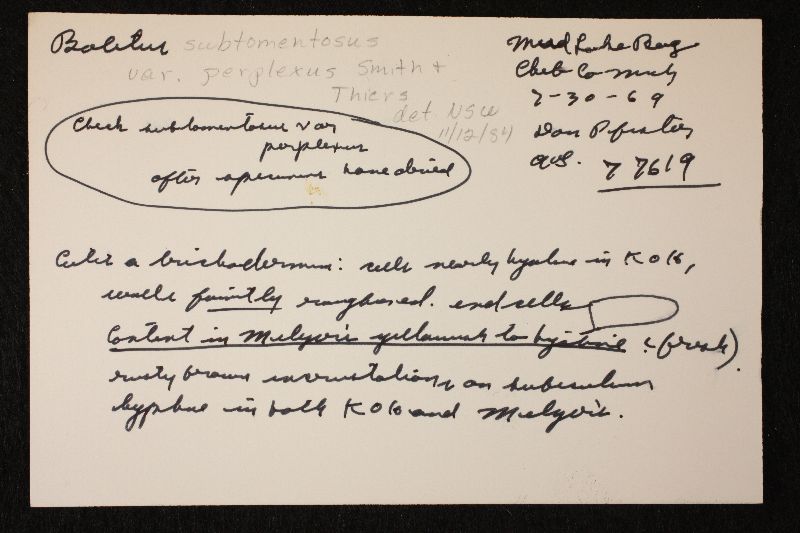 Boletus subtomentosus
var. perplexus Smith +
Thiers
det. NSW
11/12/84
Mud Lake Bog
Cheb Co Mich
7-30-69
Don Pfister
77619
Check subtomentosus var
perplexus
after specimens have dried
Cutis a trichodermium: cells nearly hyaline in KOH,
walls faintly roughened. end cells
Content in Melzers yellowish to hyaline : (fresh).
rusty brown incrustations on subiculum
hyphae in both KOH and Melzers.